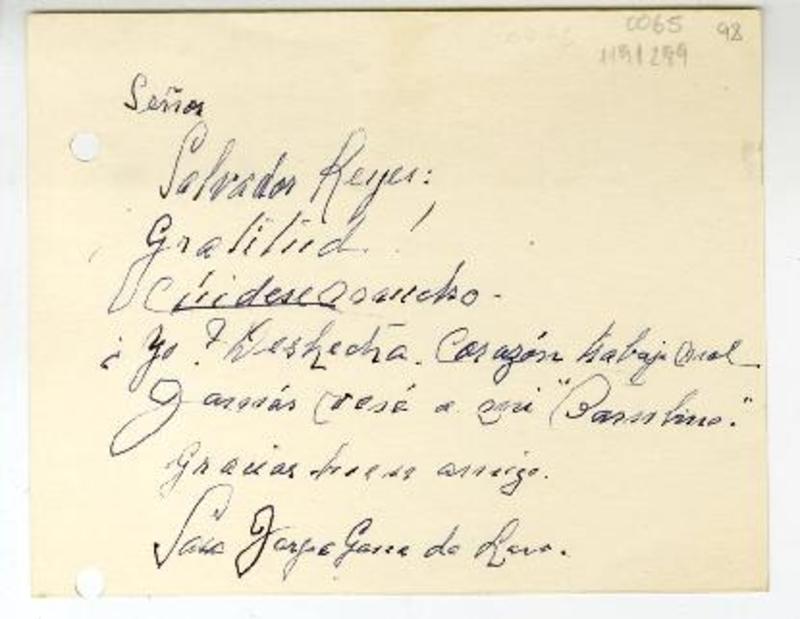 0065 98
1191299
Señor
Salvador Reyes:
Gratitud!
Cúidese mucho.
¿Yo? Deshecha. Corazón trabaja mal
Jamás veré a mi "Bambino."
Gracias buen amigo.
Sara Jorge